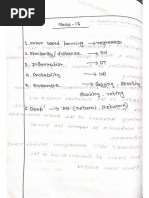 Class - 15
1. error based learning → regression
2. Similarity / distance → KNN
3. Information → DT
4. Probability → NB
5. Ensemble → Bagging, Boosting
Stacking, voting
6. Deep → NN (Neural Network)